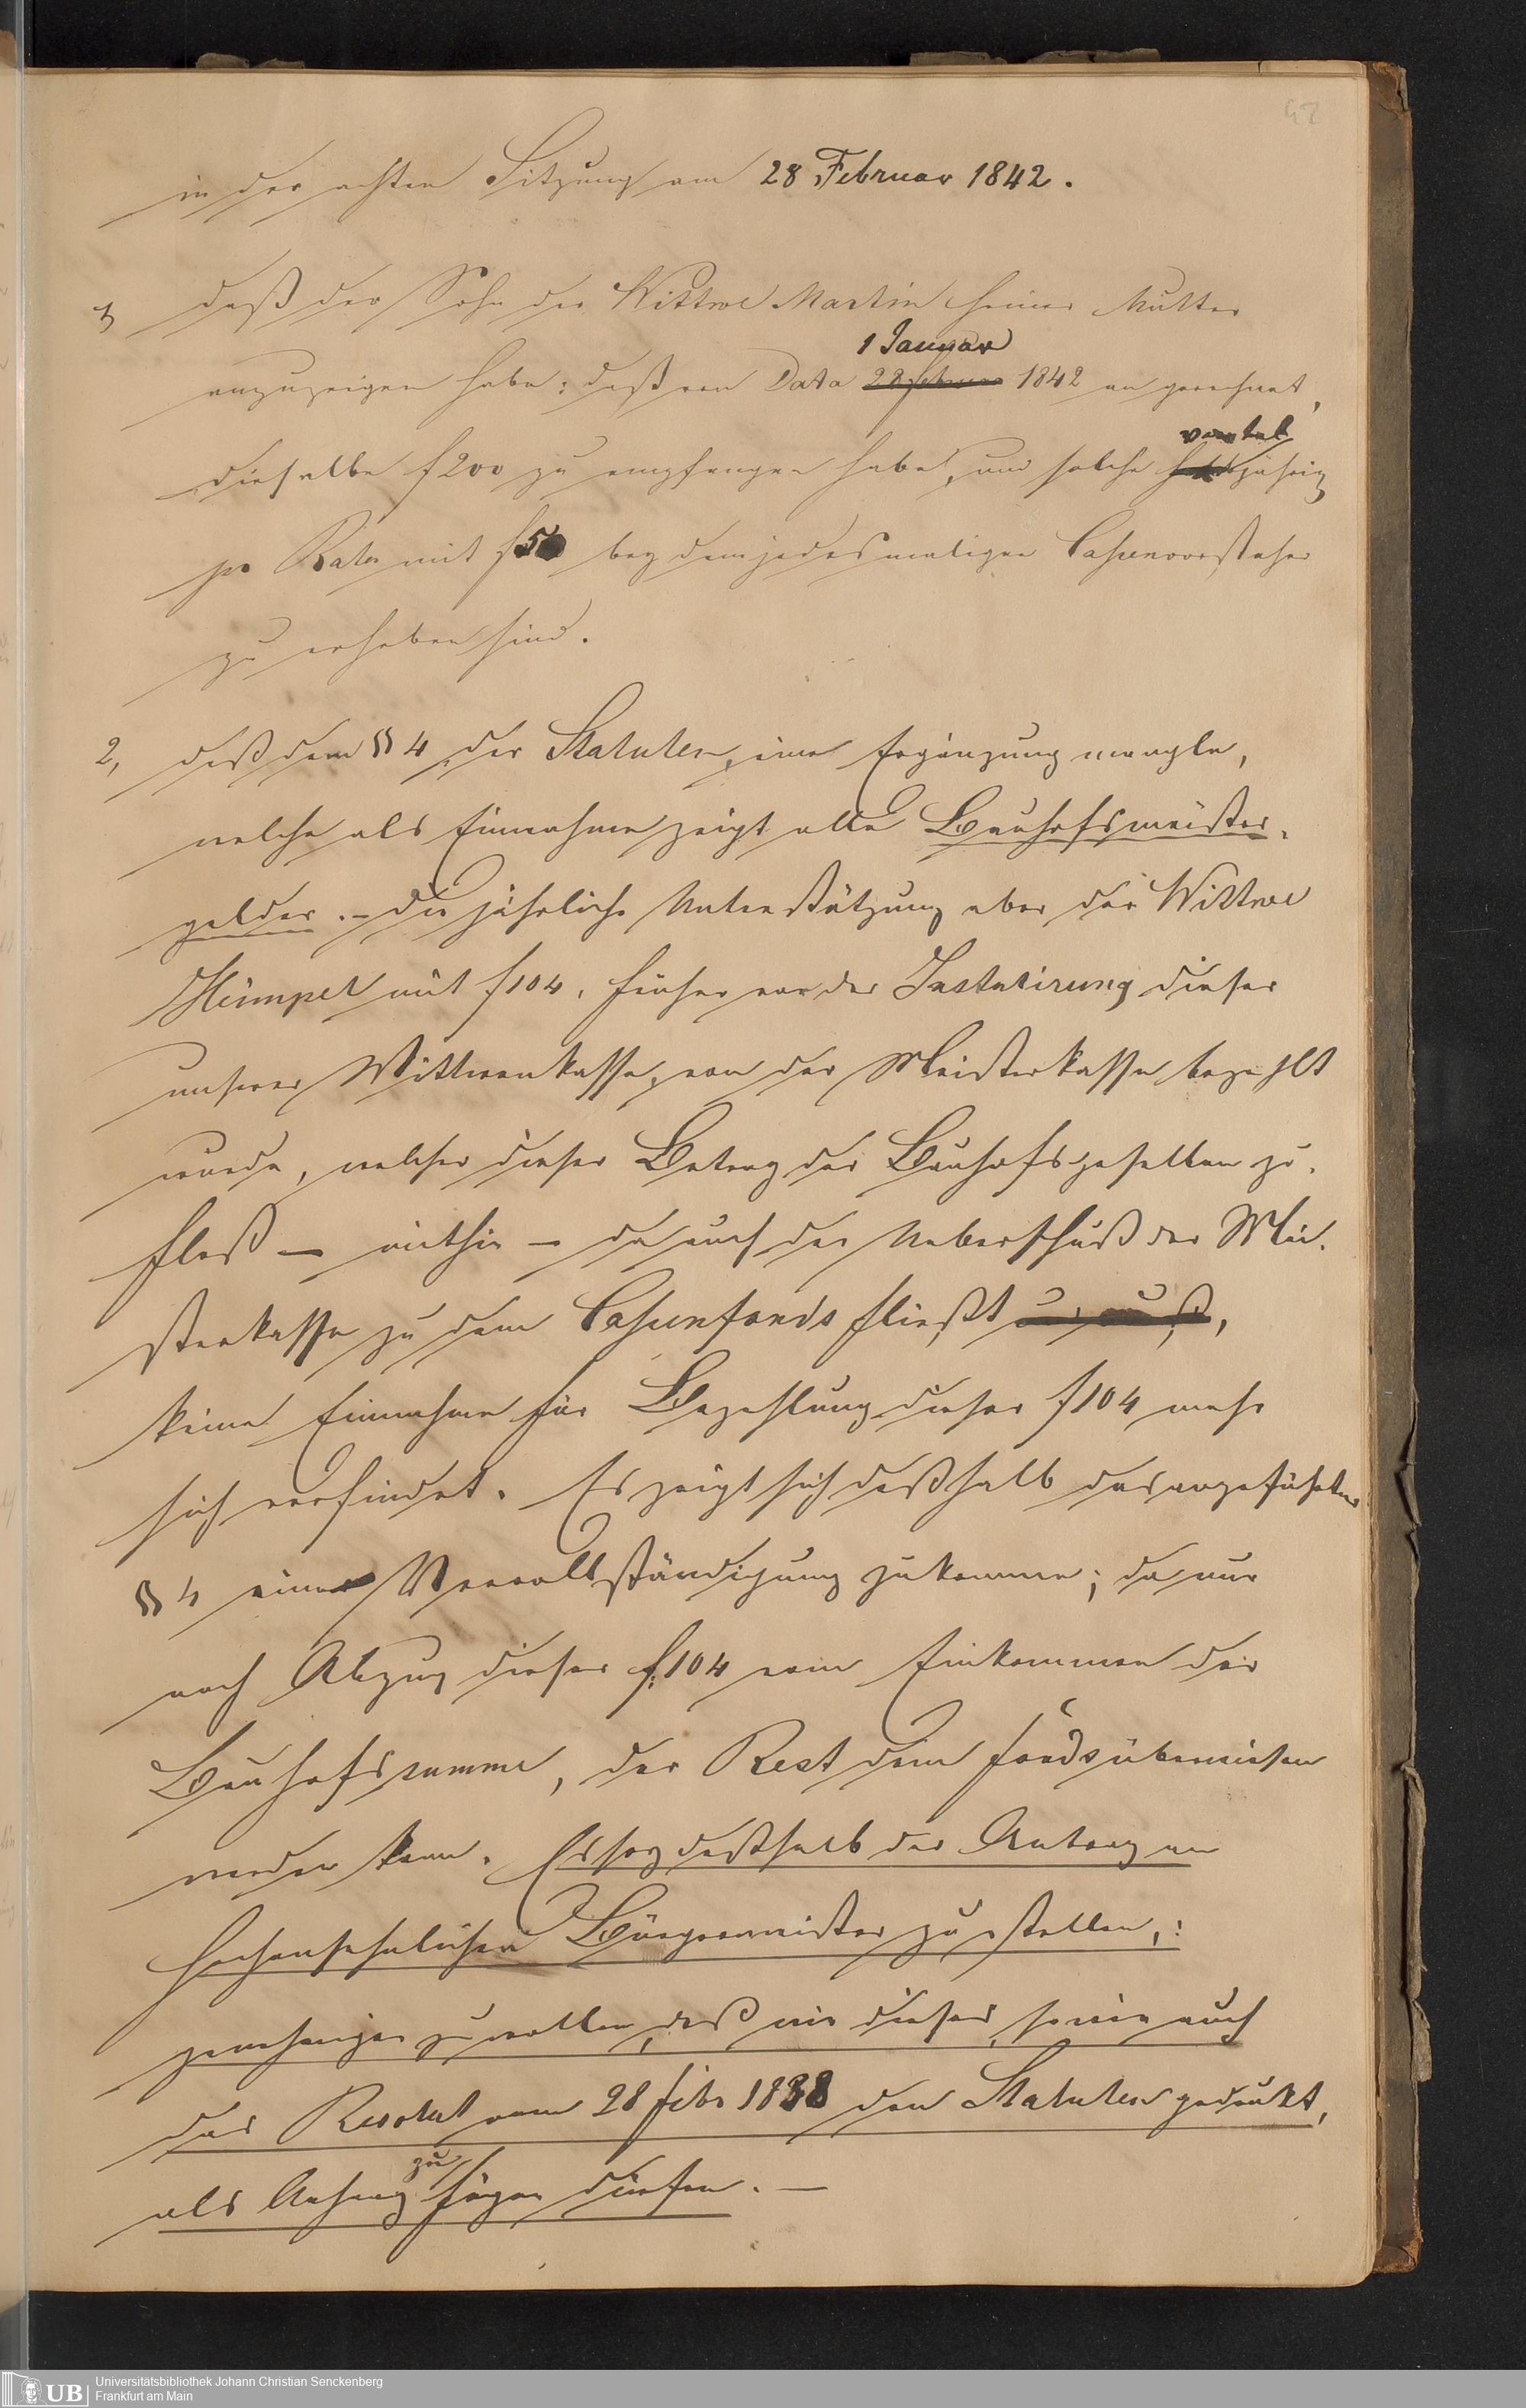 42
in der achten Sitzung am 28 Februar 1842.
1, daß der Sohn der Wittwe Martin seiner Mutter
1 Januar
anzuzeigen habe: daß von Dato 28 februar 1842 an gerechnet,
viertel
dieselbe f 200 zu empfangen habe, und solche halbjährig
pr Rata mit f 50 bey dem jedesmaligen Cassenvorsteher
zu erheben sind.
2, daß dem § 4 der Statuten, eine Ergänzung mangle,
welche als Einnahme zeigt alle Bauhofsmeister-
gelder. – die jährliche Unterstützung aber der Wittwe
Hümpel mit f 104, früher vor der Instatirung dieser
unserer Wittwenkasse, von der Meisterkasse bezahlt
wurde, welcher dieser Betrag der Bauhofsgesellen zu-
floß – mithin – da auch der Ueberschuß der Mei-
sterkasse zu dem Cassenfonds fließt,
keine Einnahme für Bezahlung dieser f 104 mehr
sich vorfindet. Es zeigt sich deßhalb das angeführter
§ 4 eine Vervollständigung zukomme; da nur
nach Abzug dieser f. 104 vom Einkommen der
Bauhofssumme, der Rest dem fonds überwiesen
werden kann. Es sey deßhalb der Antrag an
Hochansehnlichen Bürgermeister zu stellen,:
genehmigen zu wollen, daß wir dieses, sowie auch
das Resolut vom 28 febr 1838 den Statuten gedrukt,
zu
als Anhang fügen dürfen. –
Universitätsbibliothek Johann Christian Senckenberg
Frankfurt am Main
UB